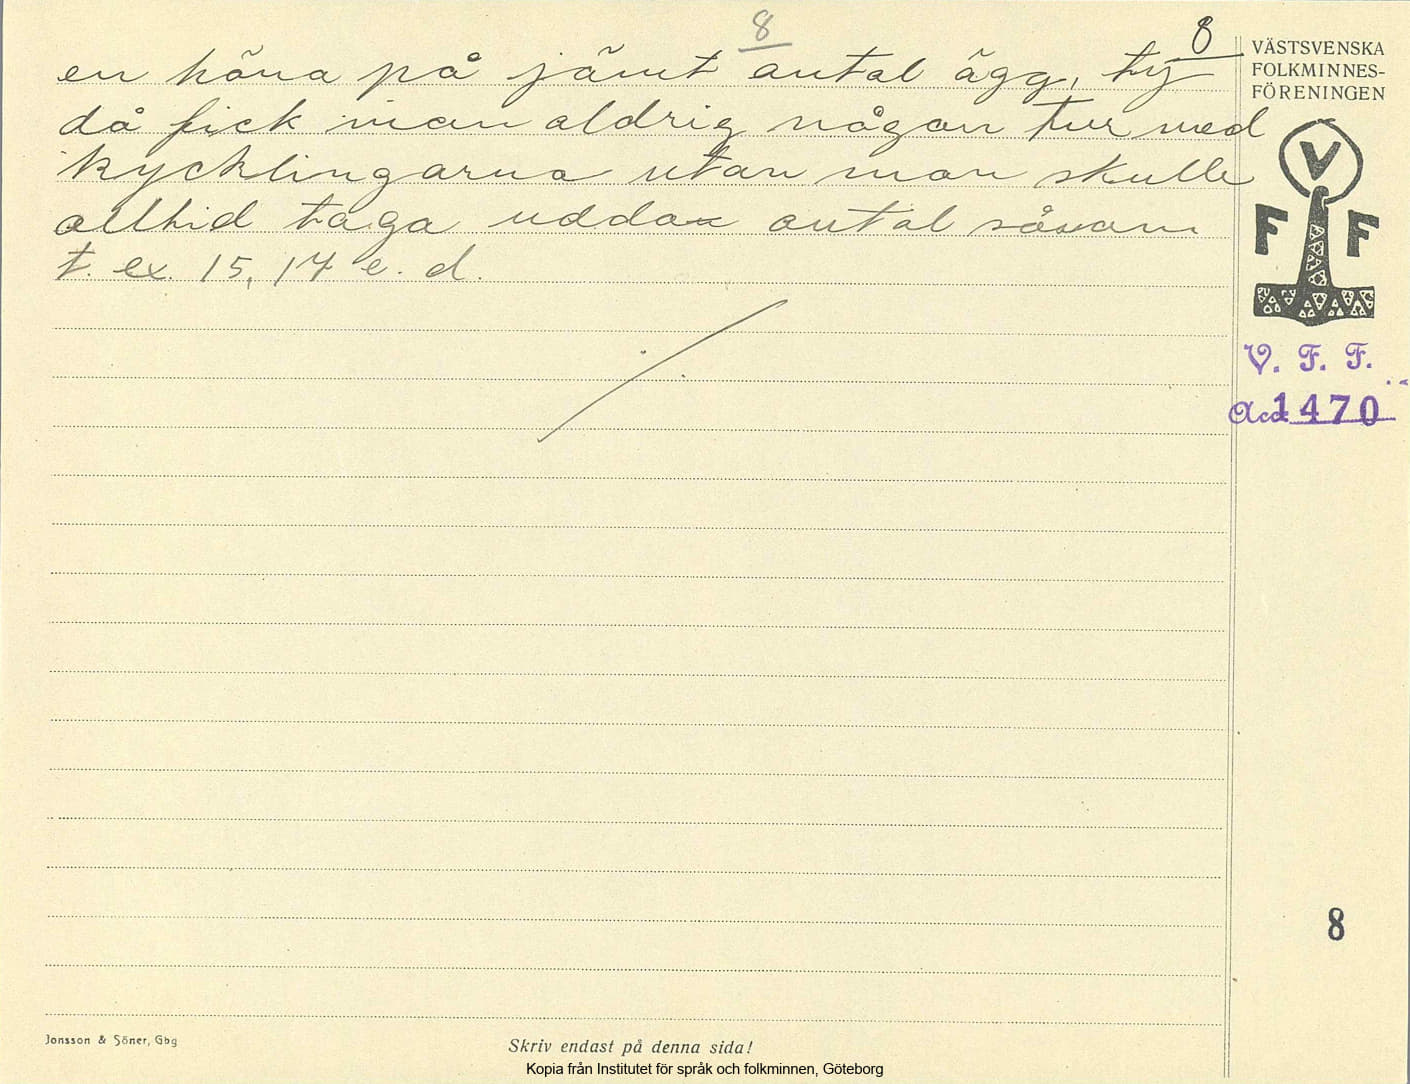 8
8
en höna på jämt antal ägg, ty
då fick man aldrig någon tur med
kycklingarna utan man skulle
alltid taga udda antal såsom
t. ex. 15, 17 e. d.
VÄSTSVENSKA
FOLKMINNES-
FÖRENINGEN
V
F F
V. F. F.
Acc. 1470
8
Jonsson & Söner, Gbg
Skriv endast på denna sida!
Kopia från Institutet för språk och folkminnen, Göteborg